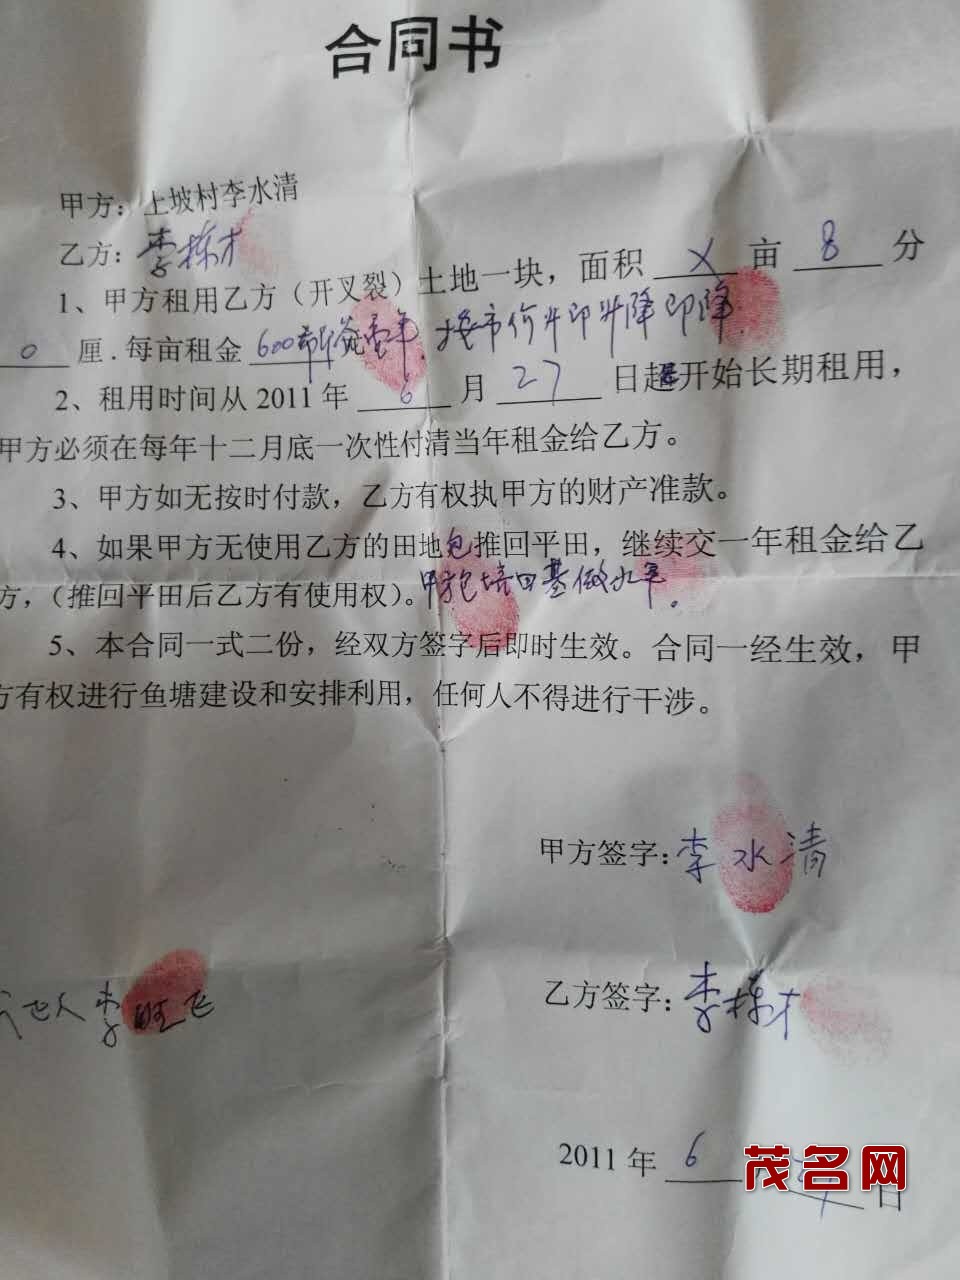 合同书
甲方：上坡村李水清
乙方：李栋才
1、甲方租用乙方（开叉裂）土地一块，面积 X 亩 8 分
0 厘.每亩租金 600 壹年.按市价升即升降即降.
2、租用时间从 2011 年 6 月 27 日起开始长期租用，
甲方必须在每年十二月底一次性付清当年租金给乙方。
3、甲方如无按时付款，乙方有权执甲方的财产准款。
4、如果甲方无使用乙方的田地包推回平田，继续交一年租金给乙
方，（推回平田后乙方有使用权）。甲方包培田基做水平。
5、本合同一式二份，经双方签字后即时生效。合同一经生效，甲
方有权进行鱼塘建设和安排利用，任何人不得进行干涉。
甲方签字：李水清
乙方签字：李栋才
人李旺飞
2011 年 6 日
茂名网